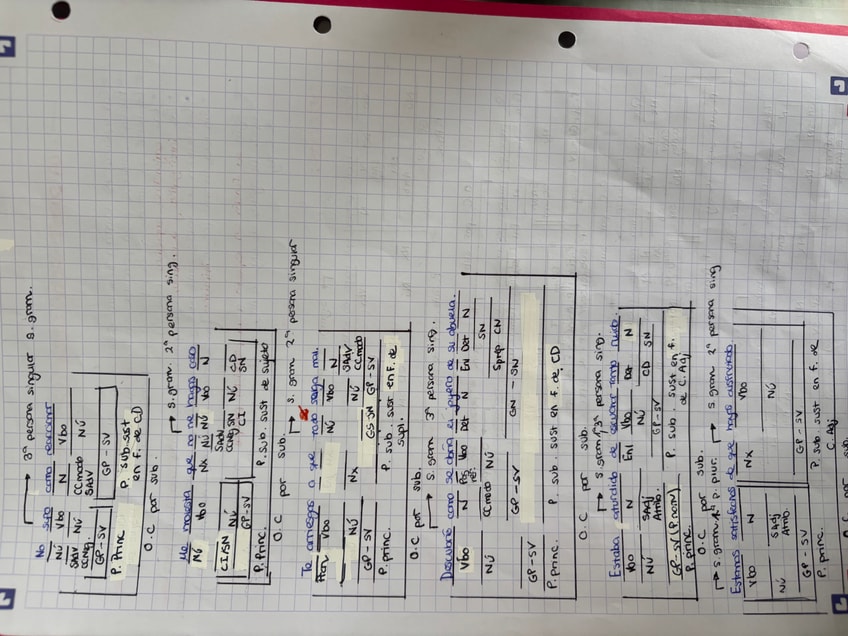 3ª persona singular s. gram.
No supo como reaccionar
Nú Vbo N Vbo
SAdv Nú CCmodo Nú
CCNeg. SAdv
GP-SV GP-SV
P. Princ P. sub. sust
en f. de CD
O.C por sub.
s. gram. 2ª persona sing.
Me molesta que no me hagas caso
Nú Vbo Nx Nú Nú Vbo N
CI/SN Nú SAdv SN Nú CD
CCNeg CI SN
GP-SV
P. Princ. P. sub. sust de sujeto
O.C por sub.
s. gram 2ª persona singular
Te arriesgas a que todo salga mal.
Vbo Nx Nú Vbo N
Nú Nú SAdv
CCmodo
GP-SV GS-SN GP-SV
P. princ. P. sub. sust en f. de
supl.
O.C por sub.
s. gram 3ª persona sing.
Descubrió como se abría el joyero de su abuela.
Vbo N Vbo Det N En Det N
Nú CCmodo Nú SN
Sprep CN
GP-SV GP-SV GN-SN
P. princ P. sub. sust en f. de CD
O.C por sub.
s. gram 3ª persona sing.
Estaba aturdido de escuchar tanto ruido.
Vbo N Enl Vbo Det N
Nú SAdj Nú CD SN
Atrib.
GP-SV (P. nom) GP-SV
P. princ. P. sub. sust en f.
de C. Adj
O.C por sub.
s. gram 1ª p. plur. s. gram 2ª persona sing
Estamos satisfechos de que hayas aprobado
Vbo N Nx Vbo
Nú SAdj Nú
Atrib.
GP-SV GP-SV
P. princ P. sub. sust en f. de
C. Adj
O.C por sub.